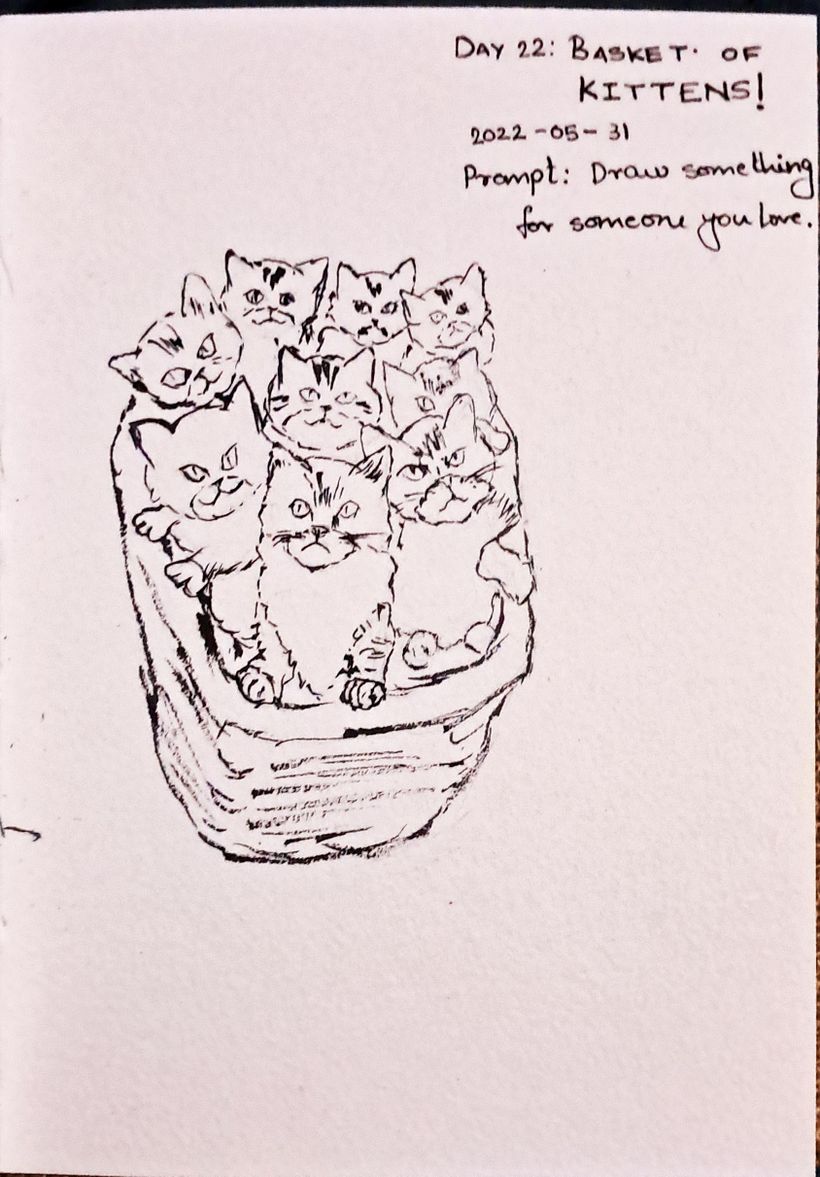 DAY 22: BASKET OF
KITTENS!
2022-05-31
Prompt: Draw something
for someone you love.